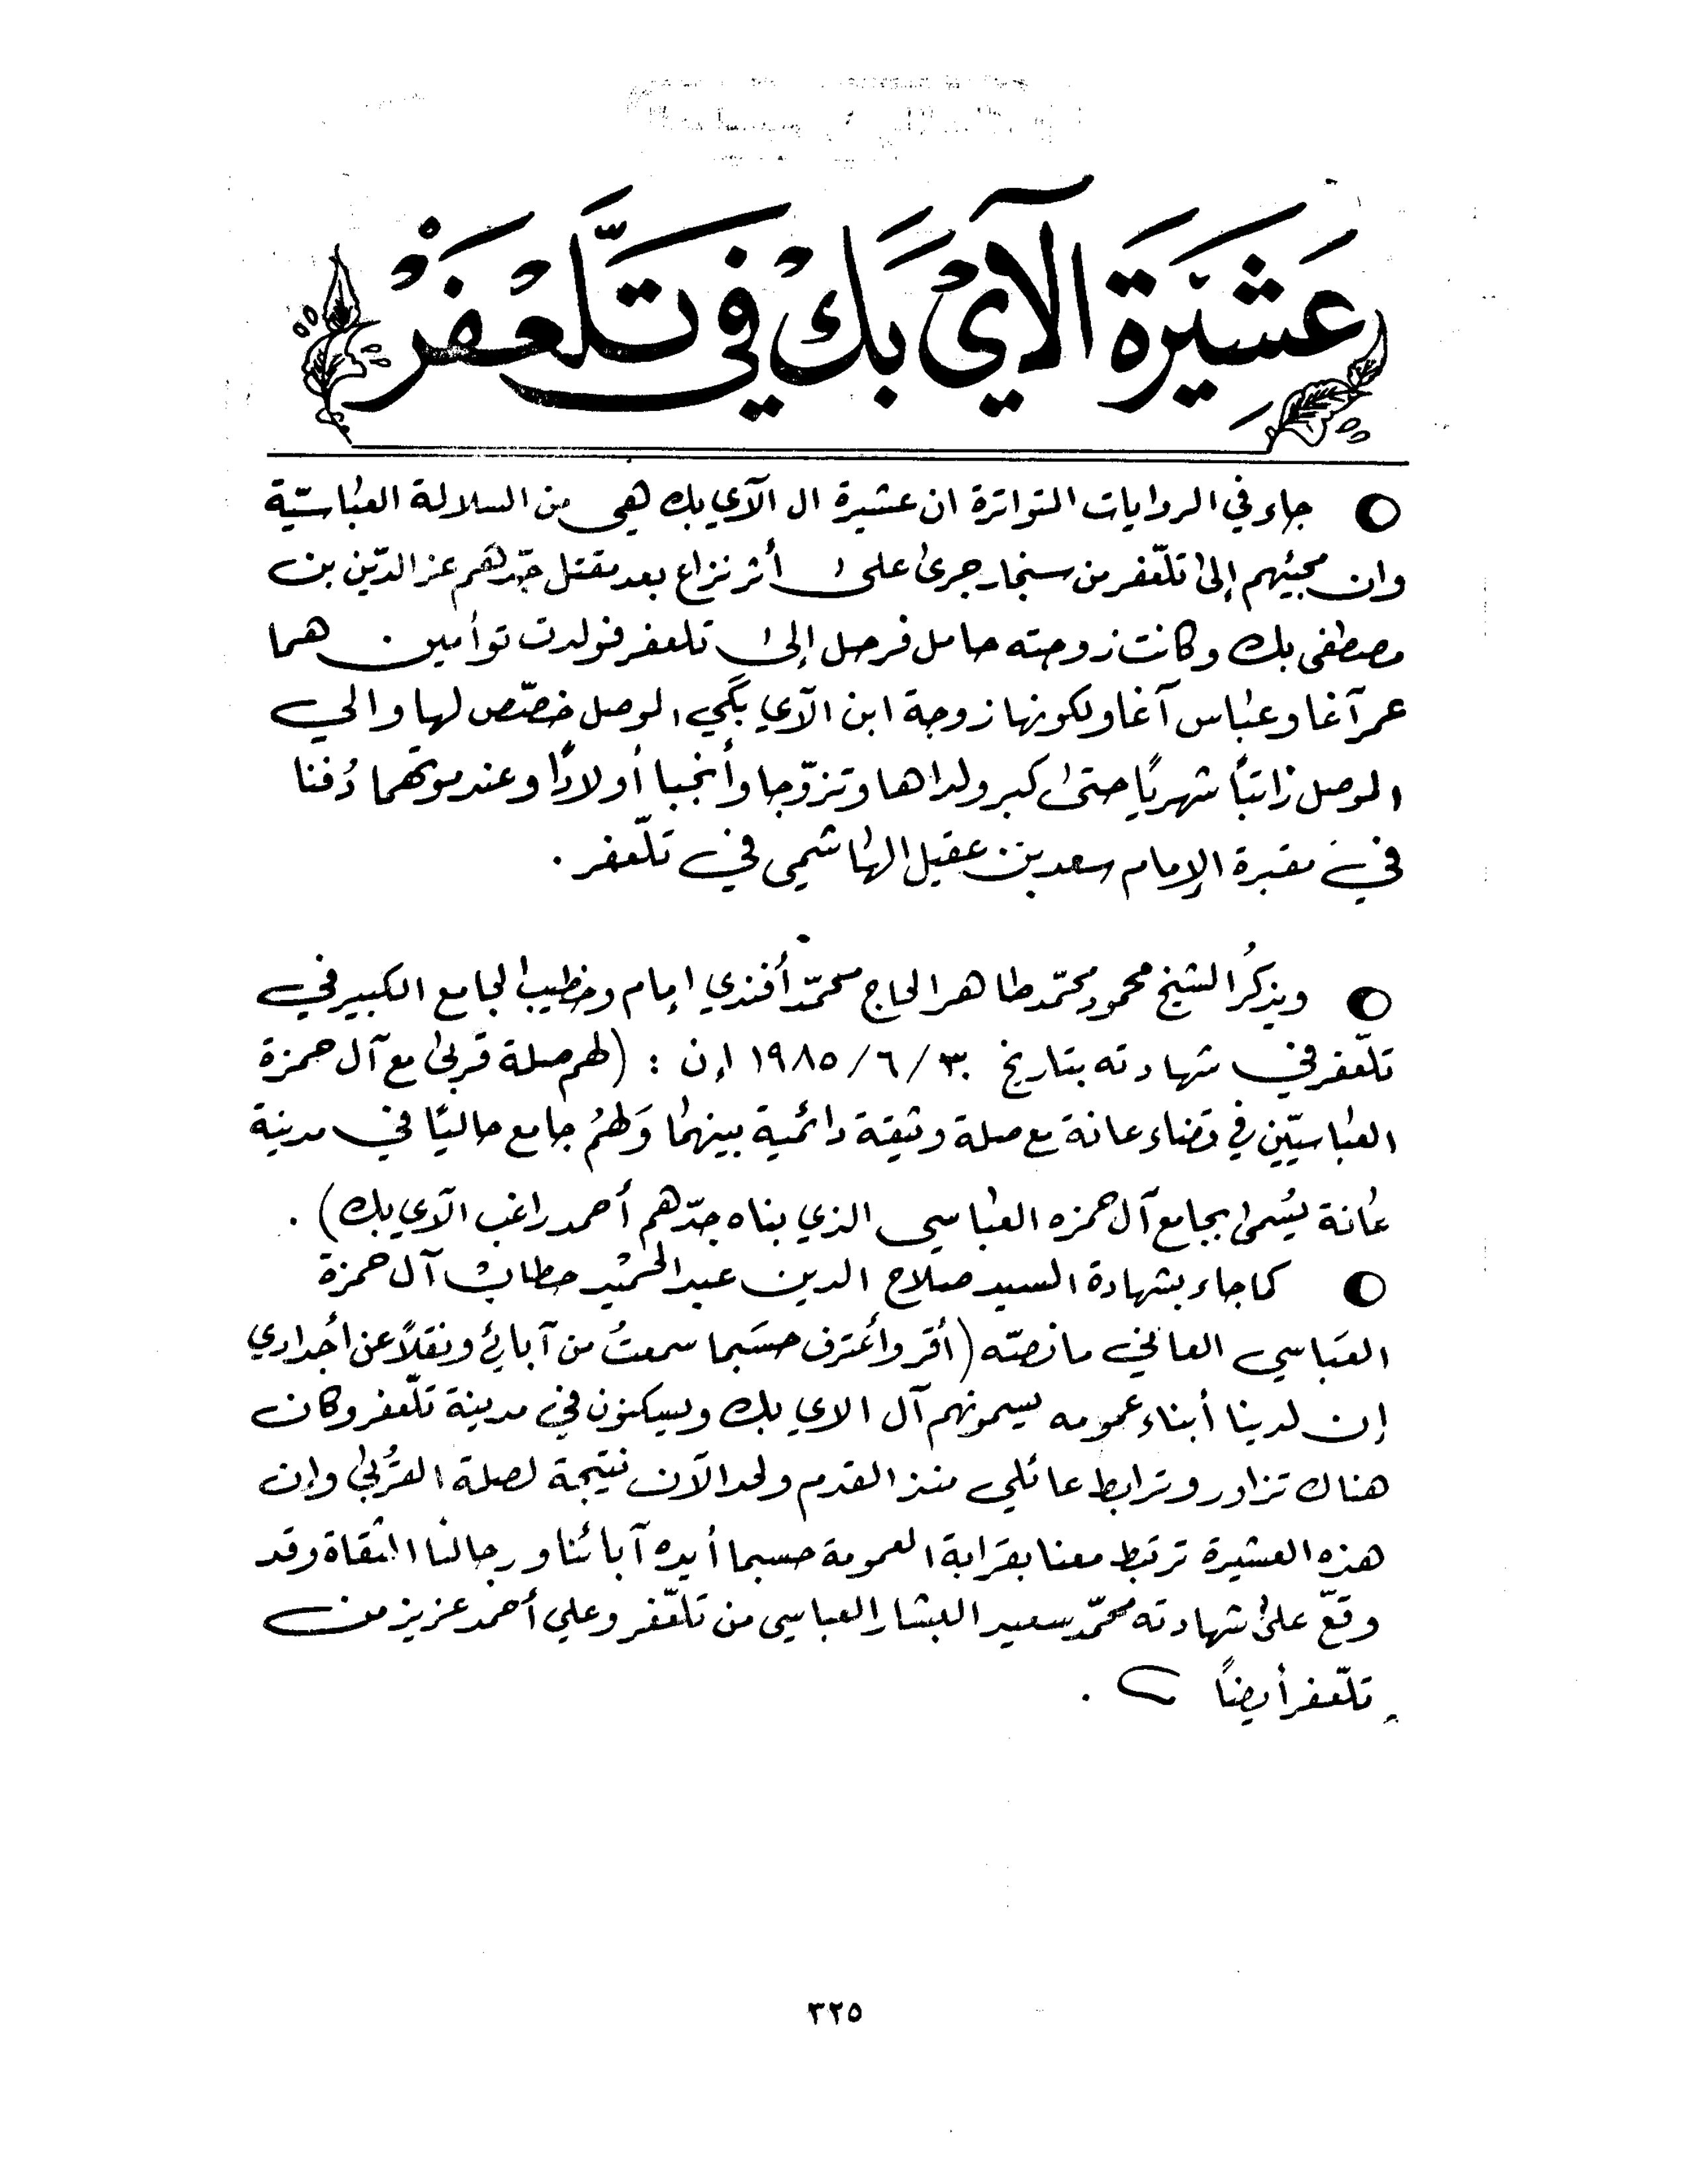 عَشيْرَة الآيْ بَكْ في تَلَّعْفَرْ
جاء في الروايات المتواترة ان عشيرة ال الآي بك هي من السلالة العباسيّة
وان مجيئهم إلى تلّعفر من سنجار جرى على أثر نزاع بعد مقتل جدّهم عز الدّين بن
مصطفى بك وكانت زوجته حامل فرحل إلى تلعفر فولدت توأمين . هما
عمر آغا وعباس آغا ولكونها زوجة ابن الآي بَگي الموصل خصّص لها والي
الموصل راتباً شهريًا حتى كبر ولداها وتزوّجا وأنجبا أولادًا وعند موتهما دُفنا
في مقبرة الإمام سعد بن عقيل الهاشمي في تلّعفر .
ويذكرُ الشيخ محمود محمّد طاهر الحاج محمّد أفندي إمام وخطيب الجامع الكبير في
تلّعفر في شهادته بتاريخ ٣٠/٦/١٩٨٥ إن : (لهم صلة قربى مع آل حمزة
العباسيّين في قضاء عانة مع صلة وثيقة دائمية بينهما وَلهُم جامع حاليًا في مدينة
عانة يُسمى بجامع آل حمزه العباسي الذي بناه جدّهم أحمد راغب الآي بك) .
كما جاء بشهادة السيد صلاح الدين عبد الحميد حطاب آل حمزة
العباسي العاني ما نصّه (أقر وأعترف حسَبما سمعتُ من آبائي ونقلاً عن أجدادي
إن لدينا أبناء عمومه يسمونهم آل الاي بك ويسكنون في مدينة تلّعفر وكان
هناك تزاور وترابط عائلي منذ القدم ولحد الآن نتيجة لصلة القُربى وإن
هذه العشيرة ترتبط معنا بقرابة العمومة حسبما أيده آبائنا ورجالنا الثقاة وقد
وقّع على شهادته محمّد سعيد البشار العباسي من تلّعفر وعلي أحمد عزيز من
تلّعفر أيضاً .
٣٢٥